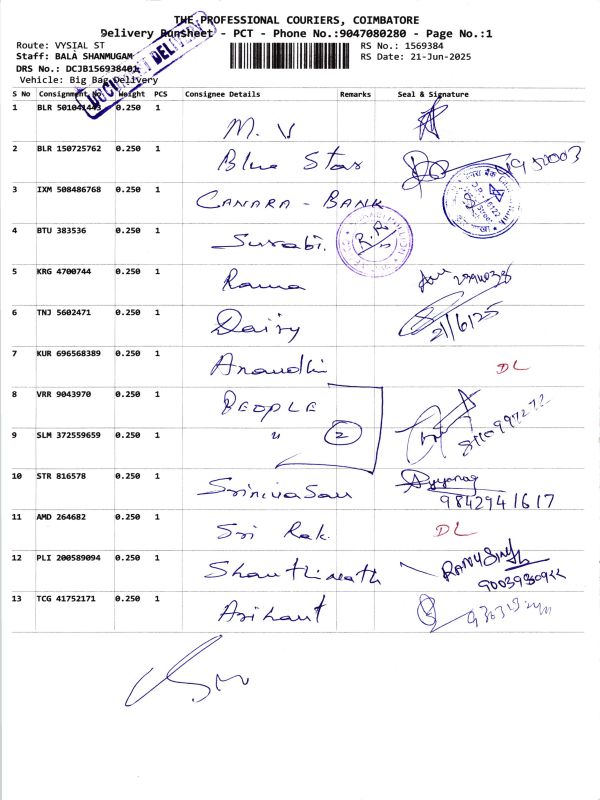 THE PROFESSIONAL COURIERS, COIMBATORE
Delivery Runsheet - PCT - Phone No.:9047080280 - Page No.:1
Route: VYSIAL ST RS No.: 1569384
Staff: BALA SHANMUGAM RS Date: 21-Jun-2025
DRS No.: DCJB156938401
Vehicle: Big Bag Delivery
DOCUMENT DELIVERY
S No Consignment No. Weight PCS Consignee Details Remarks Seal & Signature
1 BLR 501041443 0.250 1 M. V
2 BLR 150725762 0.250 1 Blue Star
3 IXM 508486768 0.250 1 CANARA - BANK
4 BTU 383536 0.250 1 Surabi.
5 KRG 4700744 0.250 1 Rama
6 TNJ 5602471 0.250 1 Dairy 21/6/25
7 KUR 696568389 0.250 1 Anandhi DL
8 VRR 9043970 0.250 1 PEOPLE
9 SLM 372559659 0.250 1 " 2
10 STR 816578 0.250 1 Srinivasan
9842941617
11 AMD 264682 0.250 1 Sri Rak. DL
12 PLI 200589094 0.250 1 Shanthinath
13 TCG 41752171 0.250 1 Arihant